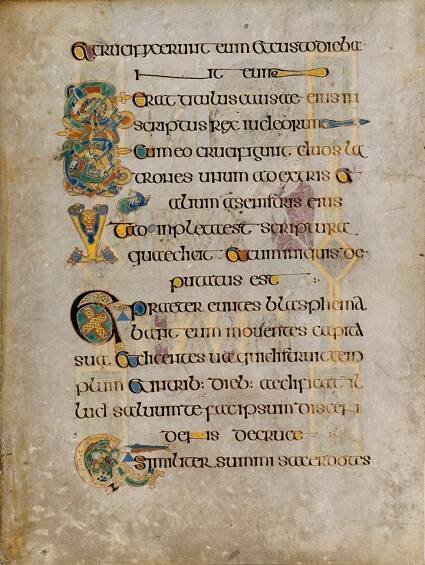 Et crucifixerunt eum et custodieba
nt eum
Et erat titulus causae eius in
scriptus rex iudeorum
Et cum eo crucifigunt duos la
trones unum ad extris et
alium a senistris eius
impleta est scriptura
quae dicit et cum iniquis de
putatus est
Et praetereuntes blasphema
bant eum mouentes capita
sua et dicentes ua qui distruit tem
plum et in trib: dieb: aedificat il
lud saluum te fac ipsum discen
dens de cruce
Et similiter summi sacerdotes